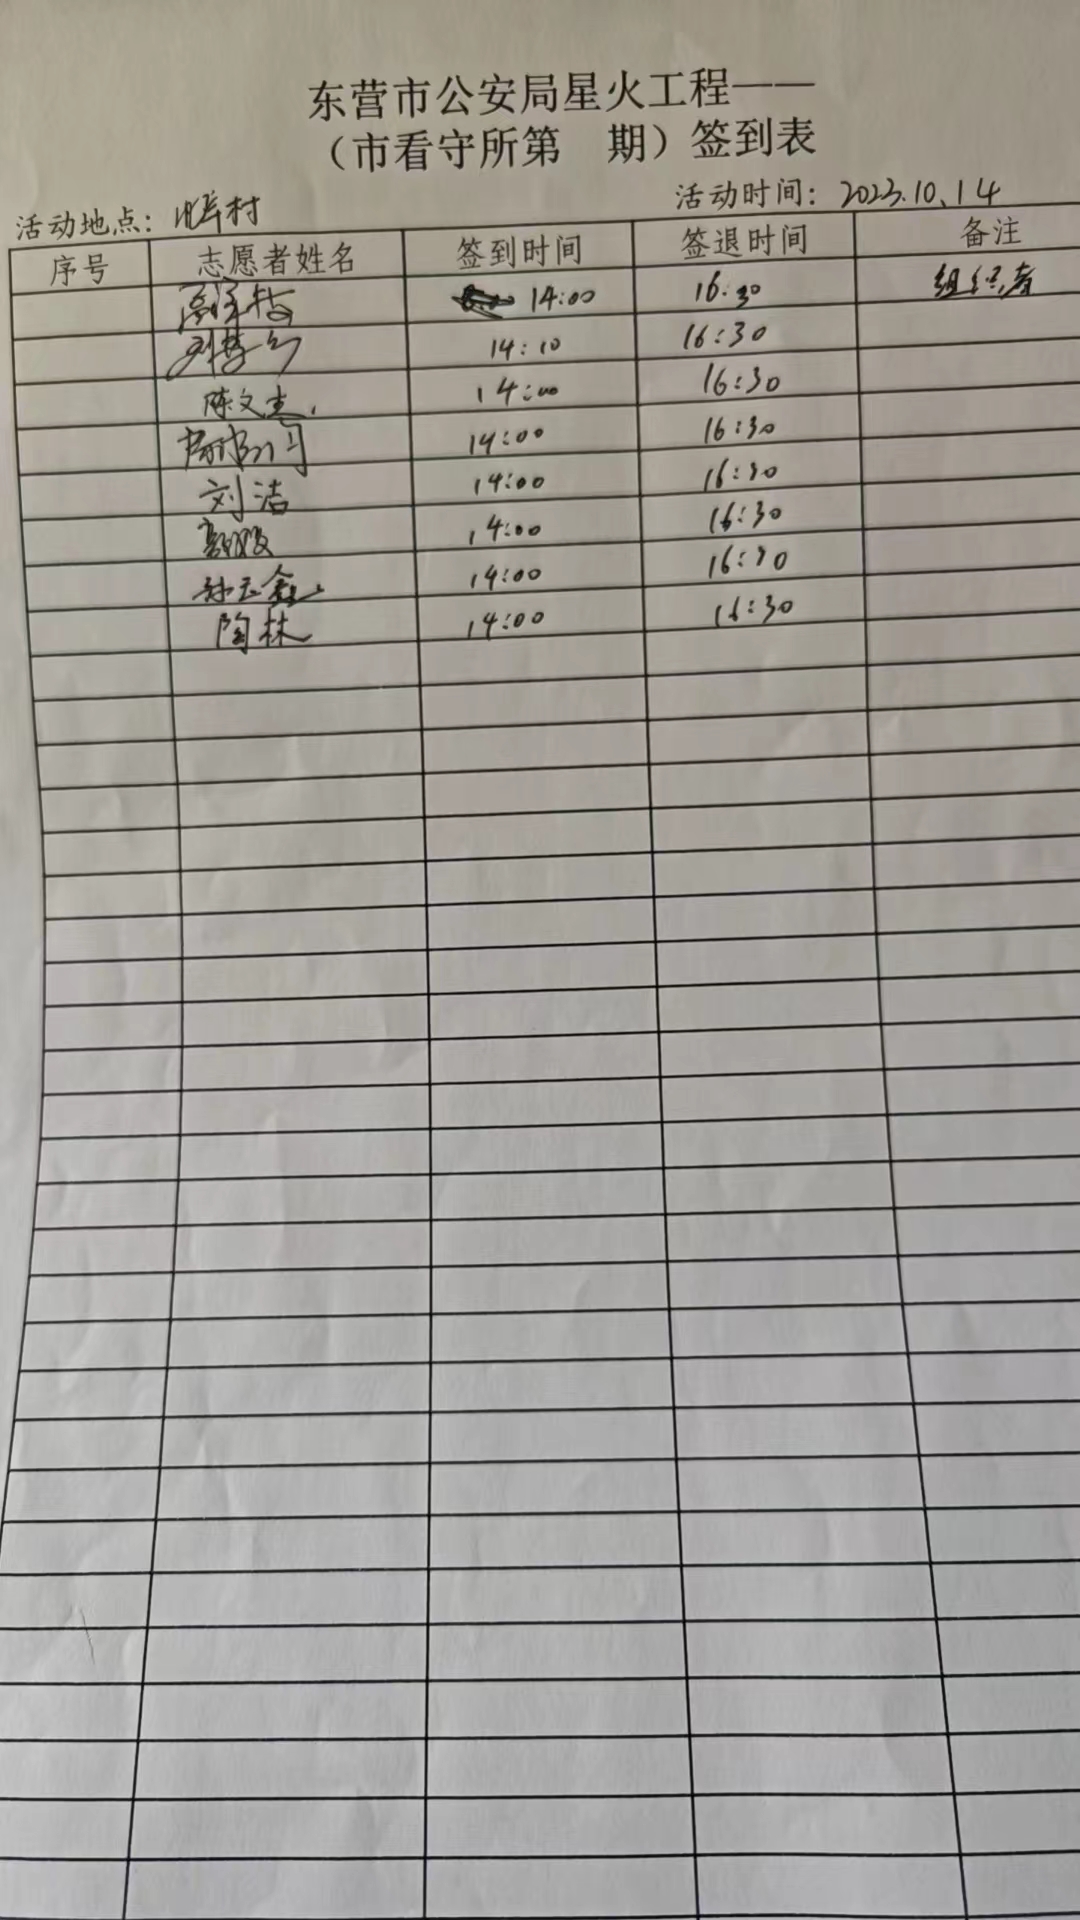 东营市公安局星火工程——
（市看守所第 期）签到表
活动地点： 村 活动时间：2023.10.14
序号 志愿者姓名 签到时间 签退时间 备注
14:00 16:30 组织者
14:10 16:30
陈文杰 14:00 16:30
14:00 16:30
刘洁 14:00 16:30
14:00 16:30
孙玉鑫 14:00 16:30
陶林 14:00 16:30